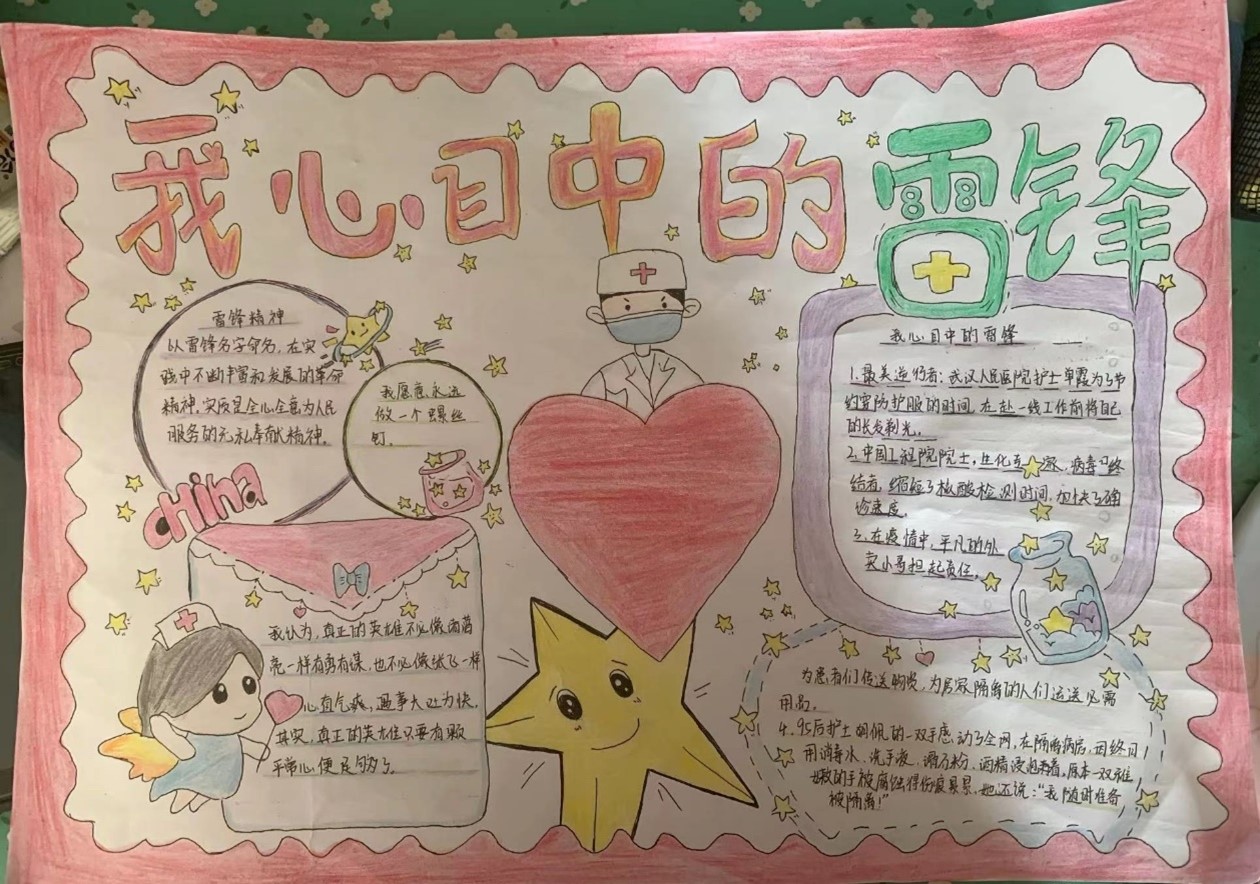 我心目中的雷锋
雷锋精神
以雷锋名字命名,在实
践中不断丰富和发展的革命
精神,实质是全心全意为人民
服务的无私奉献精神。
我愿意永远
做一个螺丝
钉。
China
我认为,真正的英雄不必像诸葛
亮一样有勇有谋,也不必像张飞一样
心直气爽,遇事大吐为快。
其实,真正的英雄只要有颗
平常心便足够了。
我心目中的雷锋
1.最美逆行者:武汉人民医院护士单霞为了节
约穿防护服的时间,在赴一线工作前将自己
的长发剃光。
2.中国工程院院士,生化专家,病毒终
结者,缩短了核酸检测时间,加快了确
诊速度。
3.在疫情中,平凡的外
卖小哥担起责任,
为患者们传送购货,为居家隔离的人们运送必需
用品。
4.95后护士胡佩的一双手感动了全网,在隔离病房,因终日
用消毒水、洗手液、滑石粉、酒精浸泡着,原本一双稚
嫩的手被腐蚀得伤痕累累,她还说:“我随时准备
被隔离!”